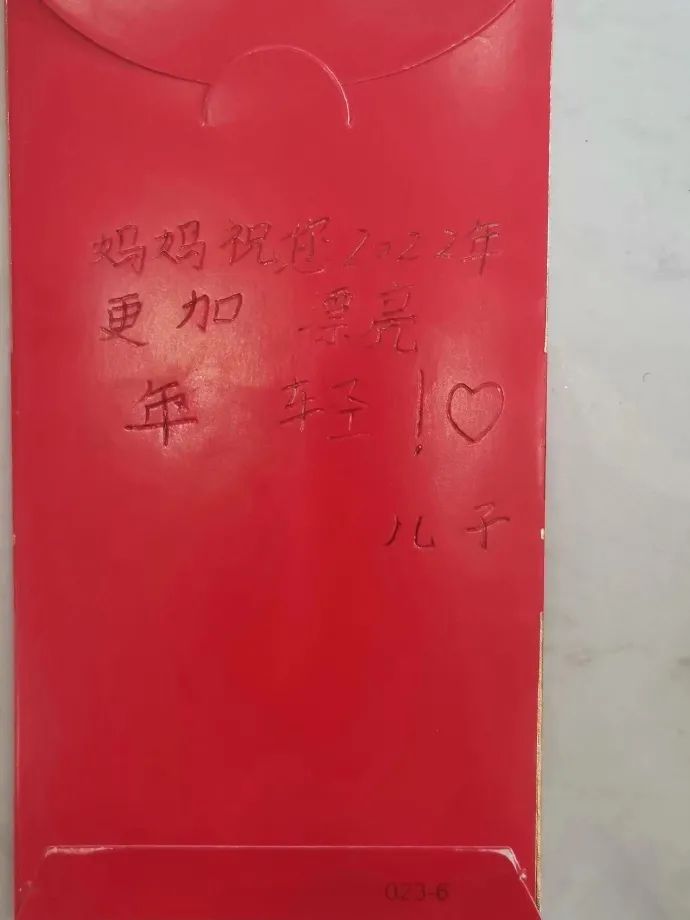 妈妈祝您2022年
更加 票亮
年 轻!♡
儿子
023-6